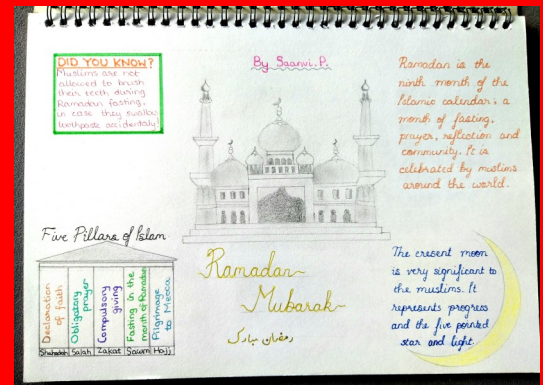 DID YOU KNOW?
Muslims are not
allowed to brush
their teeth during
Ramadan fasting,
in case they swallow
toothpaste accidentaly!
By Saanvi.P.
Ramadan is the
ninth month of the
Islamic calendar; a
month of fasting,
prayer, reflection and
community. It is
celebrated by muslims
around the world.
Five Pillars of Islam
Declaration
of faith
Obligatory
prayer
Compulsory
giving
Fasting in the
month of Ramadan
Pilgrimage
to Mecca
Shahadah Salah Zakat Sawm Hajj
Ramadan
Mubarak
رمضان مبارک
The cresent moon
is very significant to
the muslims. It
represents progress
and the five pointed
star and light.